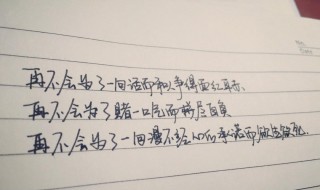 再不会为了一句话而和人争得面红耳赤.
再不会为了赌一口气而睚眦自负
再不会为了一句漫不经心的承诺而做生做死.